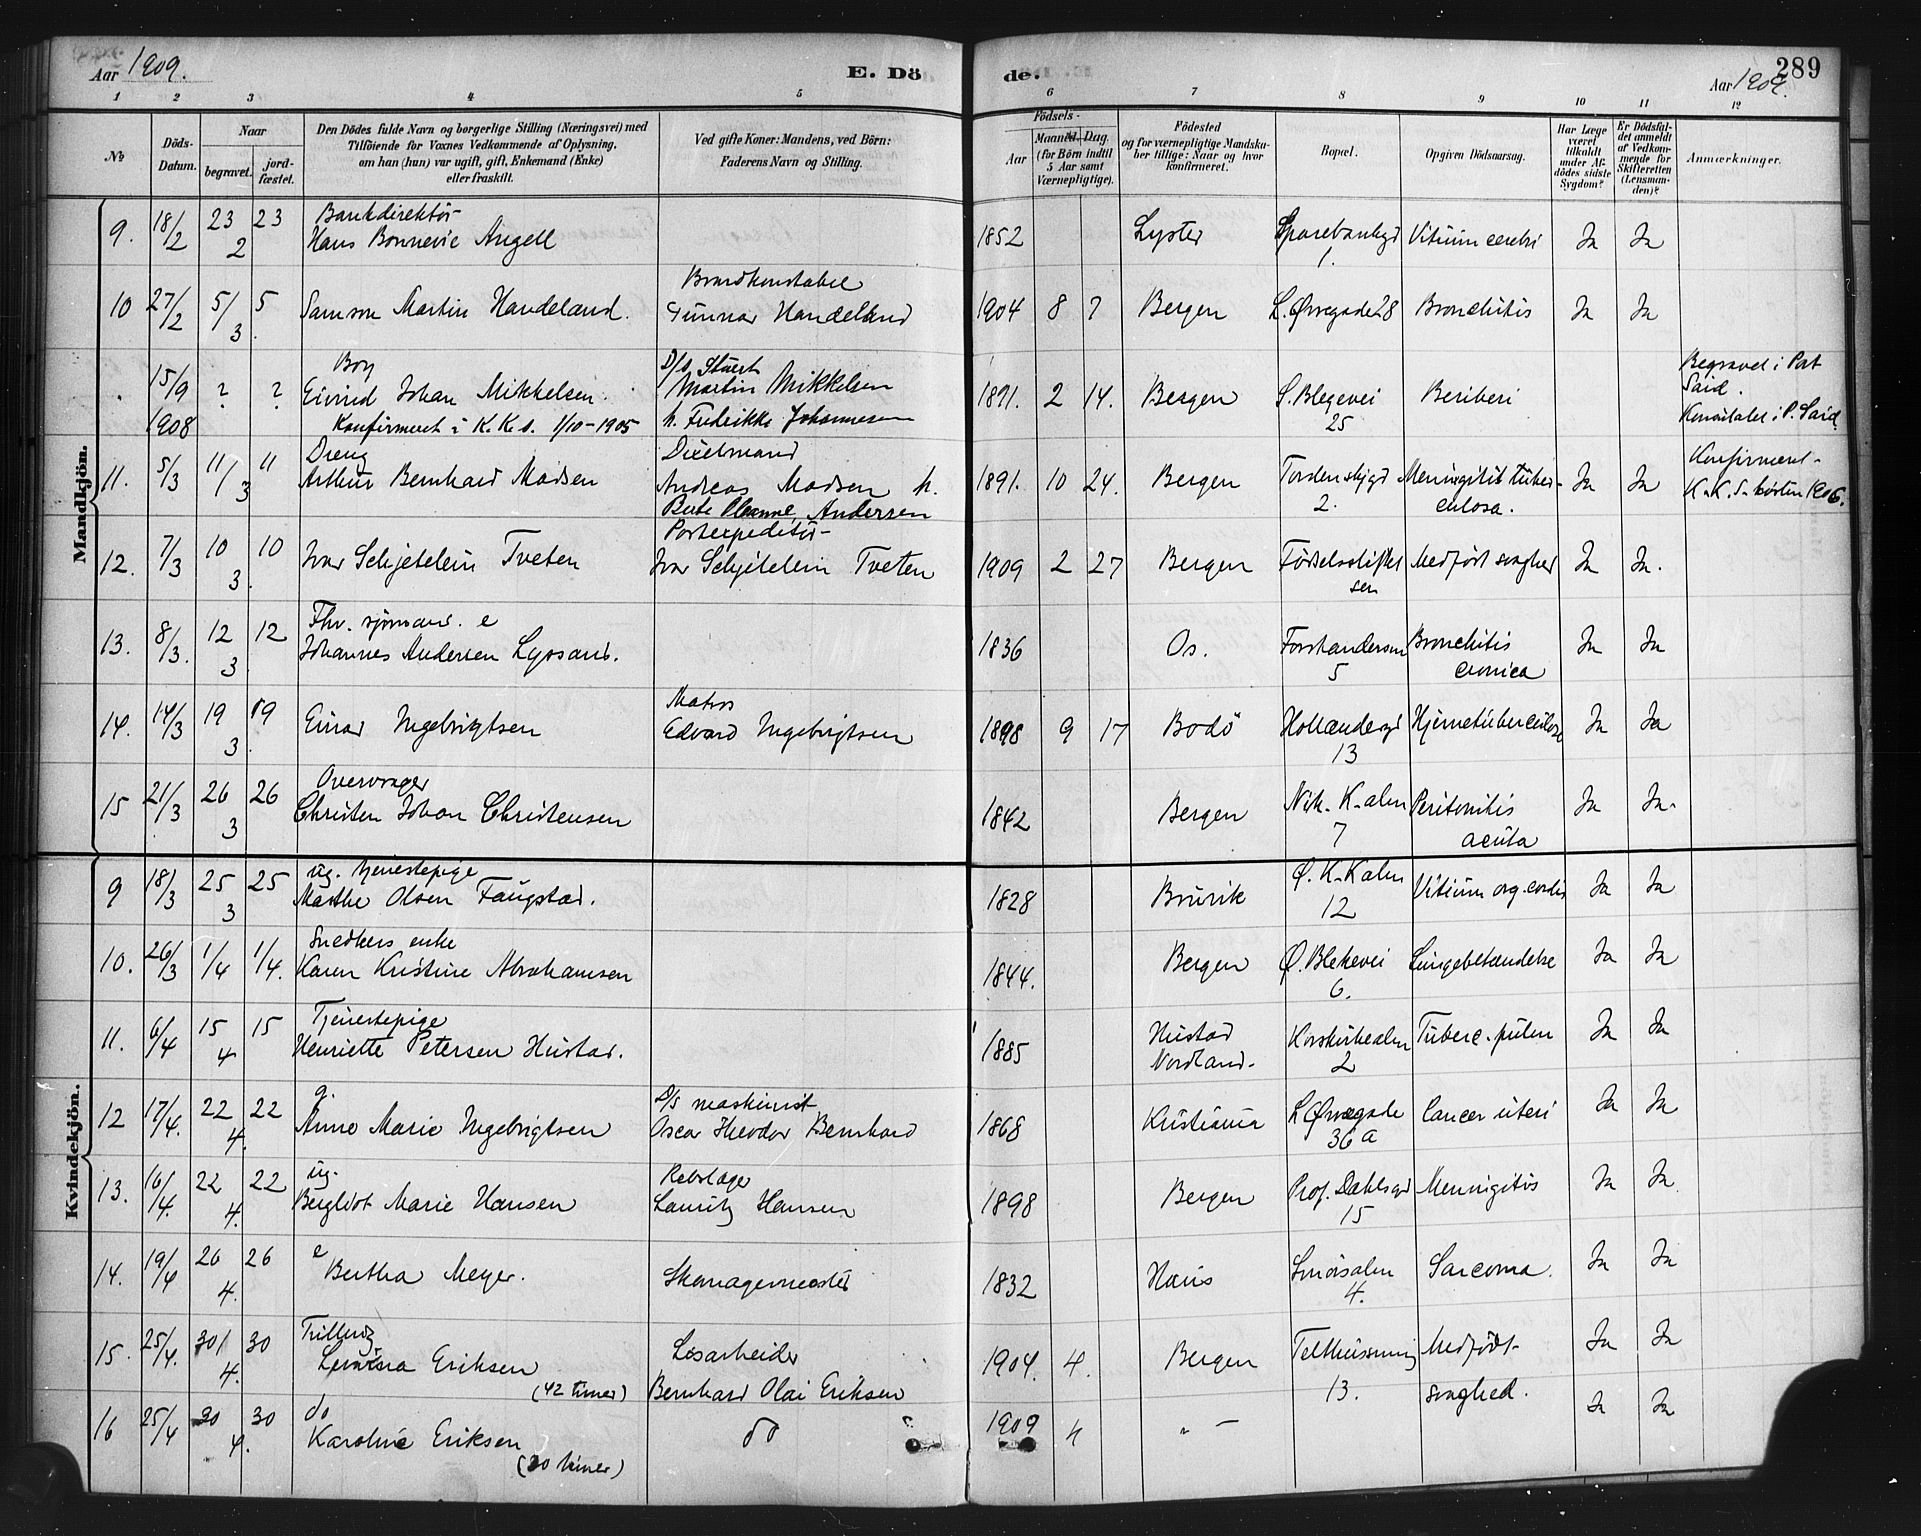 Aar 1909. E. Dö
de. 289
Aar 1909.
1 2 3 4 5 6 7 8 9 10 11 12
No Döds-Datum. Naar begravet. jordfæstet.
Den Dödes fulde Navn og borgerlige Stilling (Næringsvei) med
Tilföiende for Voxnes Vedkommende af Oplysning,
om han (hun) var ugift, gift, Enkemand (Enke)
eller fraskilt.
Ved gifte Koner: Mandens, ved Börn:
Faderens Navn og Stilling.
Födsels-
Aar Maaned. Dag.
(for Börn indtil
5 Aar samt
Værnepligtige).
Födested
og for værnepligtige Mandska-
ber tillige: Naar og hvor
konfirmeret.
Bopæl.
Opgiven Dödsaarsag.
Har Læge
været
tilkaldt
under Af-
dödes sidste
Sygdom?
Er Dödsfal-
det anmeldt
af Vedkom-
mende for
Skifteretten
(Lensman-
den)?
Anmærkninger.
Mandkjön.
Bankdirektör
9. 18/2 23/2 23 Hans Bonnevie Angell 1852 Lyster Sparebankgd 1. Vitium cerebri Ja Ja
Brandkonstabel
10 27/2 5/3 5 Samson Martin Handeland. Gunnar Handeland 1904 8 7 Bergen L. Øvregade 28 Bronchitis Ja Ja
Boy D/s. Stuert
15/9 1908 ? ? Eivind Johan Mikkelsen Martin Mikkelsen 1891. 2 14. Bergen S. Blegevei 25 Beriberi
Konfirmeret i K. K. s. 1/10-1905 h. Fredrikke Johannesen
Begravet i Port
Said.
Konsulatet i P. Said.
Dreng
11. 5/3 11/3 11 Arthur Bernhard Madsen Andreas Madsen h. 1891. 10 24. Bergen Tordenskjgd 2. Meningitit tuber-
culosa. Ja Ja
Andersen
Konfirmeret
K. K. S. hösten 1906.
Postexpeditör
12. 7/3 10/3 10 Ivar Schjetelein Tveten Ivar Schjetelein Tveten 1909 2 27 Bergen Födselsstiftel
sen Medfört svaghed Ja Ja.
Fhv. sjömand. e
13. 8/3. 12/3 12 Johannes Andersen Lyssand. 1836 Os. 5 Bronchitis
cronica Ja Ja
Matros
14. 14/3 19/3 19 Einar Ingebrigtsen Edvard Ingebrigtsen 1898 9 17 Bodö Hollendergd 13 Hjernetuberculose Ja Ja
15 21/3 26/3 26 Christen Johan Christensen 1842 Bergen Nik. K. alm 7 Peritonitis
acuta Ja Ja.
Kvindekjön.
ug. tjenestepige
9 18/3 25/3 25 Marthe Olsen Faugstad. 1828 Bruvik Ø. K. Kalm 12 Vitium org. cordis Ja Ja
Snedkers enke
10. 26/3 1/4 1/4. Karen Kristine Abrahamsen 1844. Bergen Ø. Blekevei 6. Lungebetændelse Ja Ja
Tjenestepige
11. 6/4 15/4 15 Henriette Petersen Hustad. 1885 Hustad
Nordland. Korskirkealm 2 Tuberc. pulm Ja Ja
g. D/s maskinist
12 17/4. 22/4. 22 Anne Marie Ingebrigtsen Oscar Theodor Bernhard 1868 Kristiania L Øvregade 36 a Cancer uteri Ja Ja
ug.
13. 16/4. 22/4. 22 Bergliot Marie Hansen Lauritz Hansen 1898 Bergen Prof. Dahlsgd 15 Meningitis Ja Ja
e
14. 19/4 26/4. 26 Bertha Meyer. Skomagermester 1832 Haus Smörsalm 4. Sarcoma. Ja Ja
Trilling Lösarbeider
15. 25/4. 30/4. 30 Eriksen 1904. 4. Bergen 13. Medfödt Ja Ja
(42 timer) Bernhard Olai Eriksen svaghed.
do
16 25/4 30/4. 30 Karoline Eriksen do 1909 4 " — Ja Ja
(30 timer)